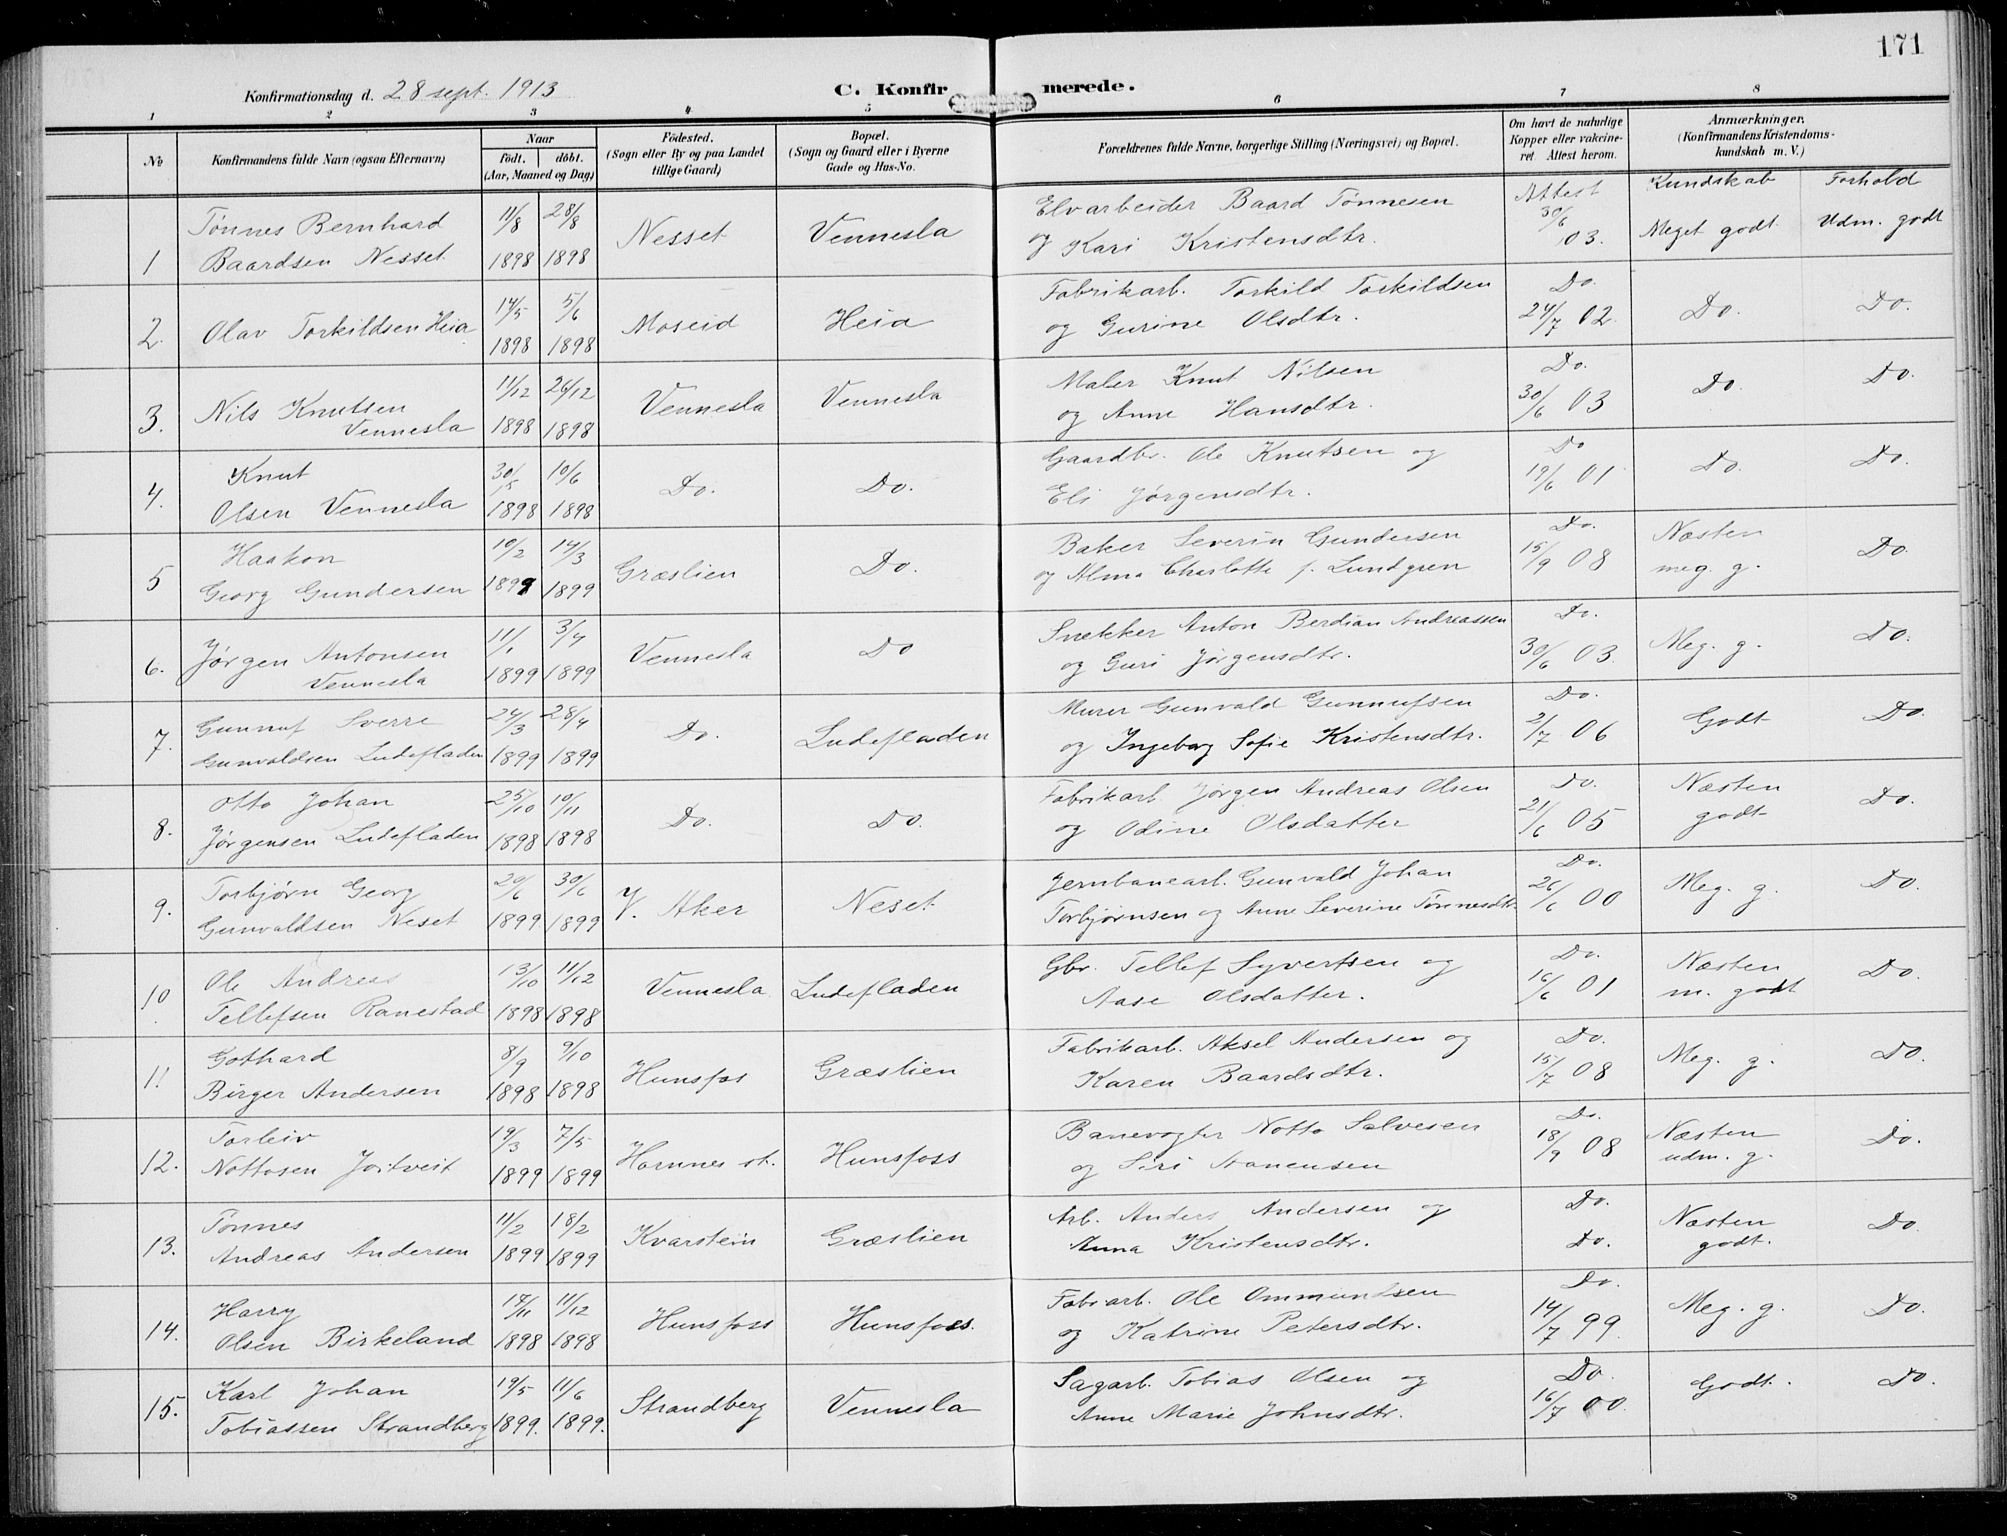 171
Konfirmationsdag d. 28 sept. 1913
C. Konfirmerede.
1 2 3 4 5 6 7 8
No
Konfirmandens fulde Navn (ogsaa Efternavn)
Naar
født. døbt.
(Aar, Maaned og Dag)
Fødested.
(Sogn eller By og paa Landet
tillige Gaard)
Bopæl.
(Sogn og Gaard eller i Byerne
Gade og Hus-No.
Forældrenes fulde Navne, borgerlige Stilling (Næringsvei) og Bopæl.
Om havt de naturlige
Kopper eller vakcine-
ret. Attest herom.
Anmærkninger.
(Konfirmandens Kristendoms-
kundskab m. V.)
Kundskab Forhold
Tønnes Bernhard 11/8 28/8 Nesset Vennesla Elvarbeider Baard Tønnesen Attest 30/6 Meget godt Udm. godt
1 Baardsen Nesset 1898 1898 og Kari Kristensdtr. 03.
14/5 5/6 Fabrikarb. Torkild Torkildsen Do.
2. Olav Torkildsen Heia 1898 1898 Moseid Heia og Gurine Olsdtr. 24/7 02. Do. Do.
Nils Knutsen 11/12 26/12 Vennesla Vennesla Maler Knut Nilsen Do. Do. Do.
3. Vennesla 1898 1898 og Anne Hansdtr. 30/6 03
Knut 30/5 10/6 Do. Do. Gaardbr. Ole Knutsen og Do Do. Do.
4. Olsen Vennesla 1898 1898 Eli Jørgensdtr. 19/6 01
Haakon 10/2 14/3 Græslien Do. Baker Severin Gundersen Do. Næsten Do.
5 Georg Gundersen 1899 1899 og Alma Charlotte f. Lundgren 15/9 08 meg. g.
Jørgen Antonsen 11/1 3/4 Vennesla Do Snekker Anton Berdian Andreassen Do. Meg. g. Do.
6. Vennesla 1899 1899 og Guri Jørgensdtr. 30/6 03.
Gunnuf Sverre 24/3 28/4 Do. Ludefladen Murer Gunvald Gunnufsen Do. Godt Do.
7. Gunvaldsen Ludefladen 1899 1899 og Ingeborg Sofie Kristensdtr. 2/7 06
Otto Johan 25/10 10/11 Do. Do. Fabrikarb. Jørgen Andreas Olsen Do. Næsten Do.
8. Jørgensen Ludefladen 1898 1898 og Odine Olsdatter 21/6 05 godt
Torbjørn Georg 20/6 30/6 V. Aker Neset Jernbanearb. Gunvald Johan Do. Meg. g. Do.
9. Gunvaldsen Neset 1899 1899 Torbjørnsen og Anne Severine Tønnesdtr. 26/6 00
Ole Andreas 13/10 11/12 Vennesla Ludefladen Gbr. Tellef Syvertsen og Do. Næsten Do.
10 Tellefsen Ranestad 1898 1898 Aase Olsdatter. 16/6 01 m. godt
Gothard 8/9 9/10 Hunsfos Græslien Fabrikarb. Aksel Andersen og Do. Meg. g. Do.
11 Birger Andersen 1898 1898 Karen Baardsdtr. 15/7 08
Torleiv 19/3 7/5 Hornnes st. Hunsfoss Banevogter Notto Salvesen Do. Næsten Do.
12. Nottosen Jortveit 1899 1899 og Siri 18/9 08 udm. g.
Tønnes 11/2 18/2 Kvarstein Græslien Arb. Anders Andersen og Do. Næsten Do.
13. Andreas Andersen 1899 1899 Anna Kristensdtr. Do. godt.
Harry 17/11 11/12 Hunsfoss Hunsfoss. Fabrarb. Ole Ommundsen Do. Meg. g. Do.
14. Olsen Birkeland 1898 1898 og Katrine Petersdtr. 14/7 99
Karl Johan 19/5 11/6 Strandberg Vennesla Sagarb. Tobias Olsen og Do. Godt. Do.
15. Tobiassen Strandberg 1899. 1899. Anne Marie Johnsdtr. 16/7 00.